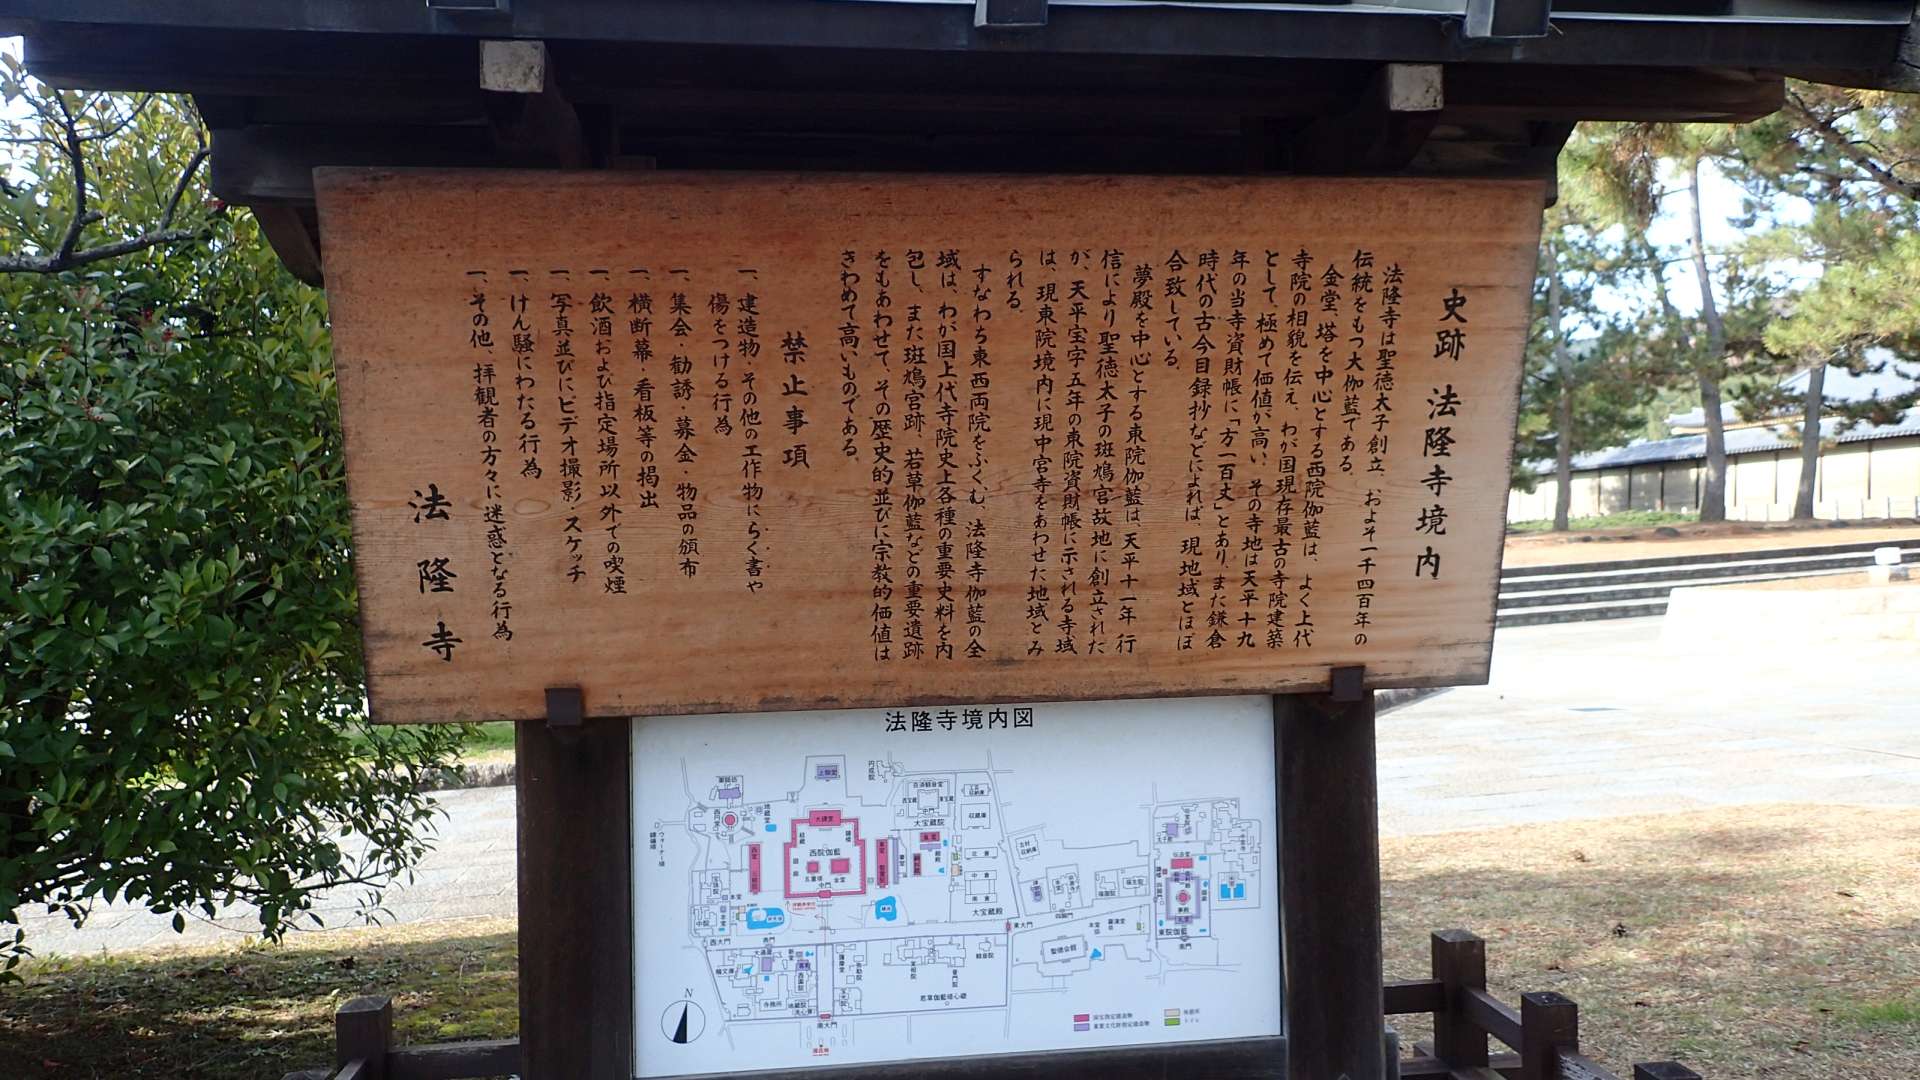 史跡 法隆寺境内
法隆寺は聖徳太子創立、およそ一千四百年の
伝統をもつ大伽藍である。
金堂、塔を中心とする西院伽藍は、よく上代
寺院の相貌を伝え、わが国現存最古の寺院建築
として、極めて価値が高い。その寺地は天平十九
年の当寺資財帳に「方一百丈」とあり、また鎌倉
時代の古今目録抄などによれば、現地域とほぼ
合致している。
夢殿を中心とする東院伽藍は、天平十一年行
信により聖徳太子の斑鳩宮故地に創立された
が、天平宝字五年の東院資財帳に示される寺域
は、現東院境内に現中宮寺をあわせた地域とみ
られる。
すなわち東西両院をふくむ、法隆寺伽藍の全
域は、わが国上代寺院史上各種の重要史料を内
包し、また斑鳩宮跡、若草伽藍などの重要遺跡
をもあわせて、その歴史的並びに宗教的価値は
きわめて高いものである。
禁止事項
一、建造物、その他の工作物にらく書や
傷をつける行為
一、集会・勧誘・募金・物品の頒布
一、横断幕・看板等の掲出
一、飲酒および指定場所以外での喫煙
一、写真並びにビデオ撮影・スケッチ
一、けん騒にわたる行為
一、その他、拝観者の方々に迷惑となる行為
法隆寺
法隆寺境内図
上御堂
西円堂
地蔵堂
大講堂
経蔵
鐘楼
西院伽藍
回廊
五重塔
金堂
中門
大宝蔵院
中門
収蔵庫
北倉
中倉
南倉
大宝蔵殿
西大門
東大門
四脚門
聖徳会館
東院伽藍
夢殿
南門
中院
本堂
寺務所
地蔵院
洗心寮
宝光院
弥勒院
実相院
普門院
若草伽藍塔心礎
南大門
N